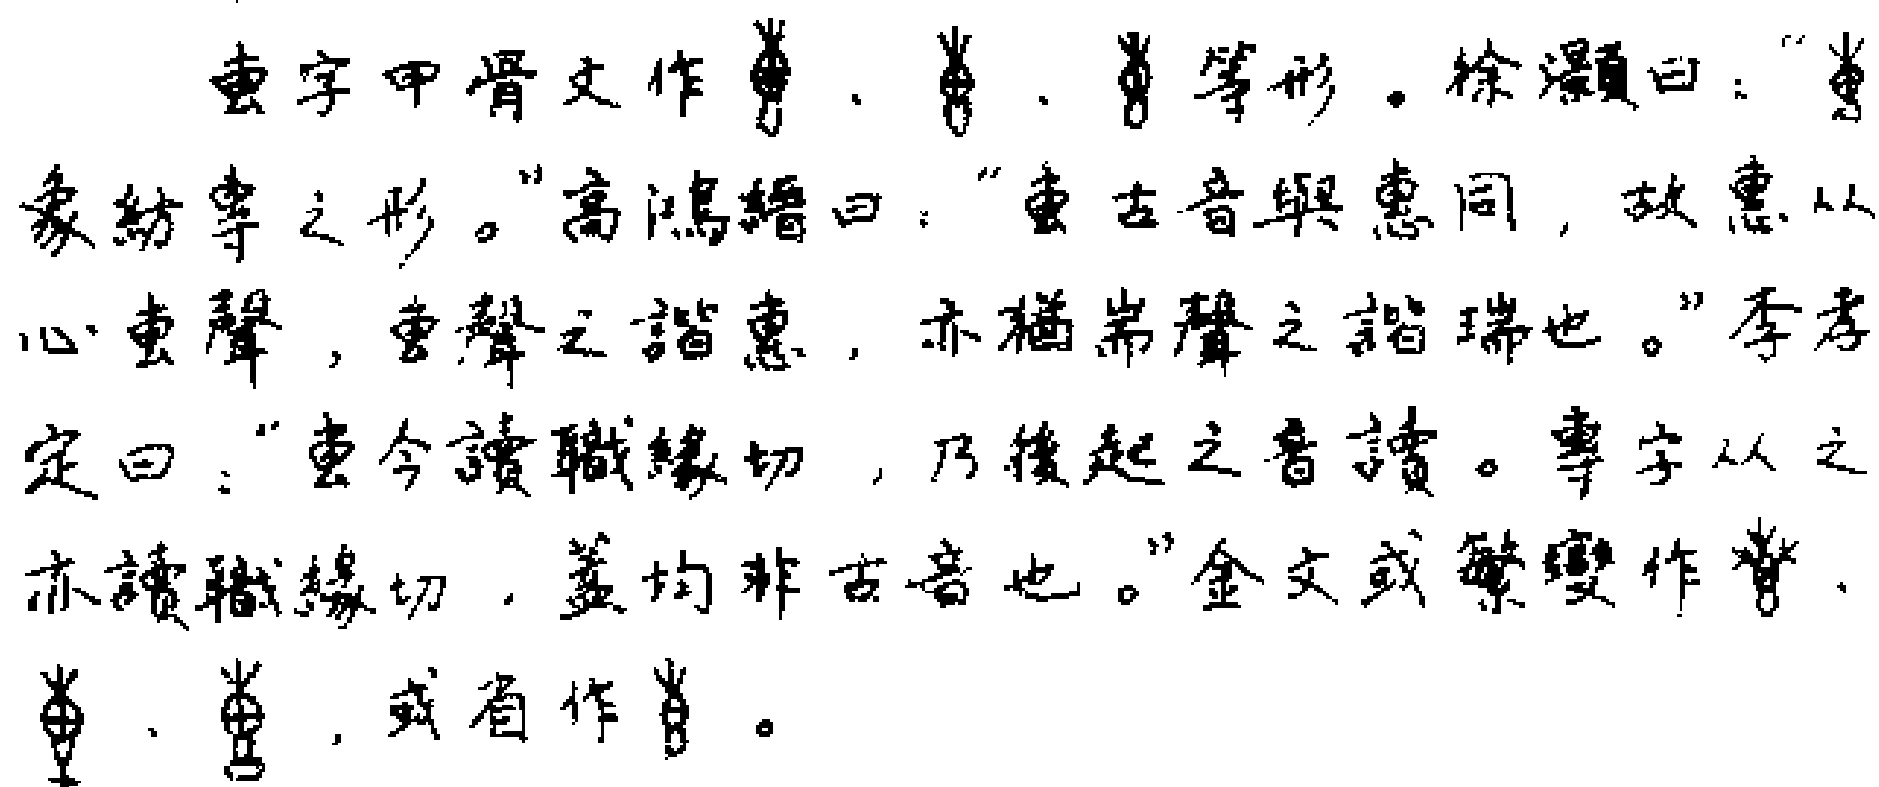 叀字甲骨文作、、等形。徐灝曰："
象紡專之形。"高鴻縉曰："叀古音與惠同，故惠从
心叀聲，叀聲之諧惠，亦猶耑聲之諧瑞也。"李孝
定曰："叀今讀職緣切，乃後起之音讀。專字从之
亦讀職緣切，蓋均非古音也。"金文或繁變作、
、，或省作。